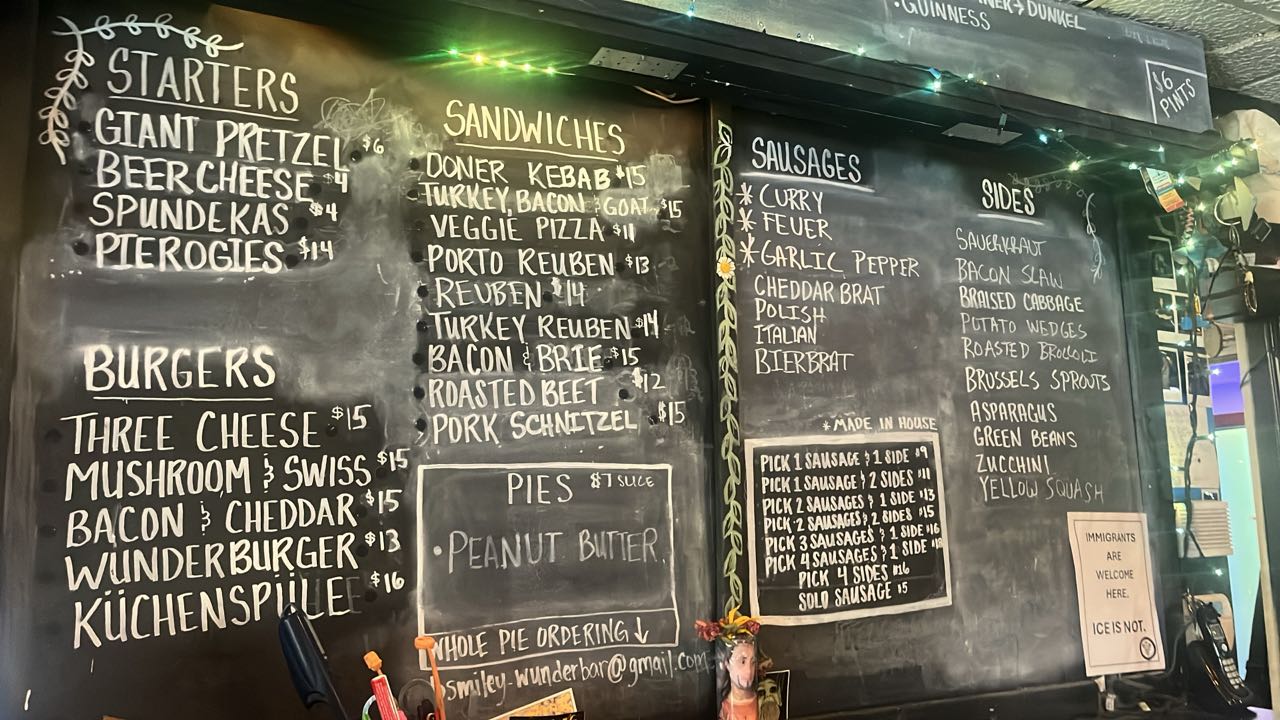 STARTERS
GIANT PRETZEL $6
BEER CHEESE $4
SPUNDEKAS $4
PIEROGIES $14
BURGERS
THREE CHEESE $15
MUSHROOM & SWISS $15
BACON & CHEDDAR $15
WUNDERBURGER $13
KÜCHENSPÜLE $16
SANDWICHES
DONER KEBAB $15
TURKEY, BACON & GOAT $15
VEGGIE PIZZA $11
PORTO REUBEN $13
REUBEN $14
TURKEY REUBEN $14
BACON & BRIE $15
ROASTED BEET $12
PORK SCHNITZEL $15
PIES $7 SLICE
• PEANUT BUTTER
WHOLE PIE ORDERING ↓
smiley-wunderbar@gmail.com
SAUSAGES
* CURRY
* FEUER
* GARLIC PEPPER
CHEDDAR BRAT
POLISH
ITALIAN
BIERBRAT
* MADE IN HOUSE
PICK 1 SAUSAGE & 1 SIDE $9
PICK 1 SAUSAGE & 2 SIDES $11
PICK 2 SAUSAGES & 1 SIDE $13
PICK 2 SAUSAGES & 2 SIDES $15
PICK 3 SAUSAGES & 1 SIDE $16
PICK 4 SAUSAGES & 1 SIDE
PICK 4 SIDES $16
SOLO SAUSAGE $5
SIDES
SAUERKRAUT
BACON SLAW
BRAISED CABBAGE
POTATO WEDGES
ROASTED BROCCOLI
BRUSSELS SPROUTS
ASPARAGUS
GREEN BEANS
ZUCCHINI
YELLOW SQUASH
→ DUNKEL
• GUINNESS
$6
PINTS
IMMIGRANTS
ARE
WELCOME
HERE.
ICE IS NOT.